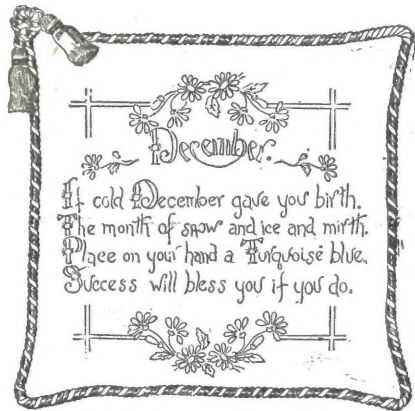 December.
If cold December gave you birth.
The month of snow and ice and mirth.
Place on your hand a Turquoise blue.
Success will bless you if you do.